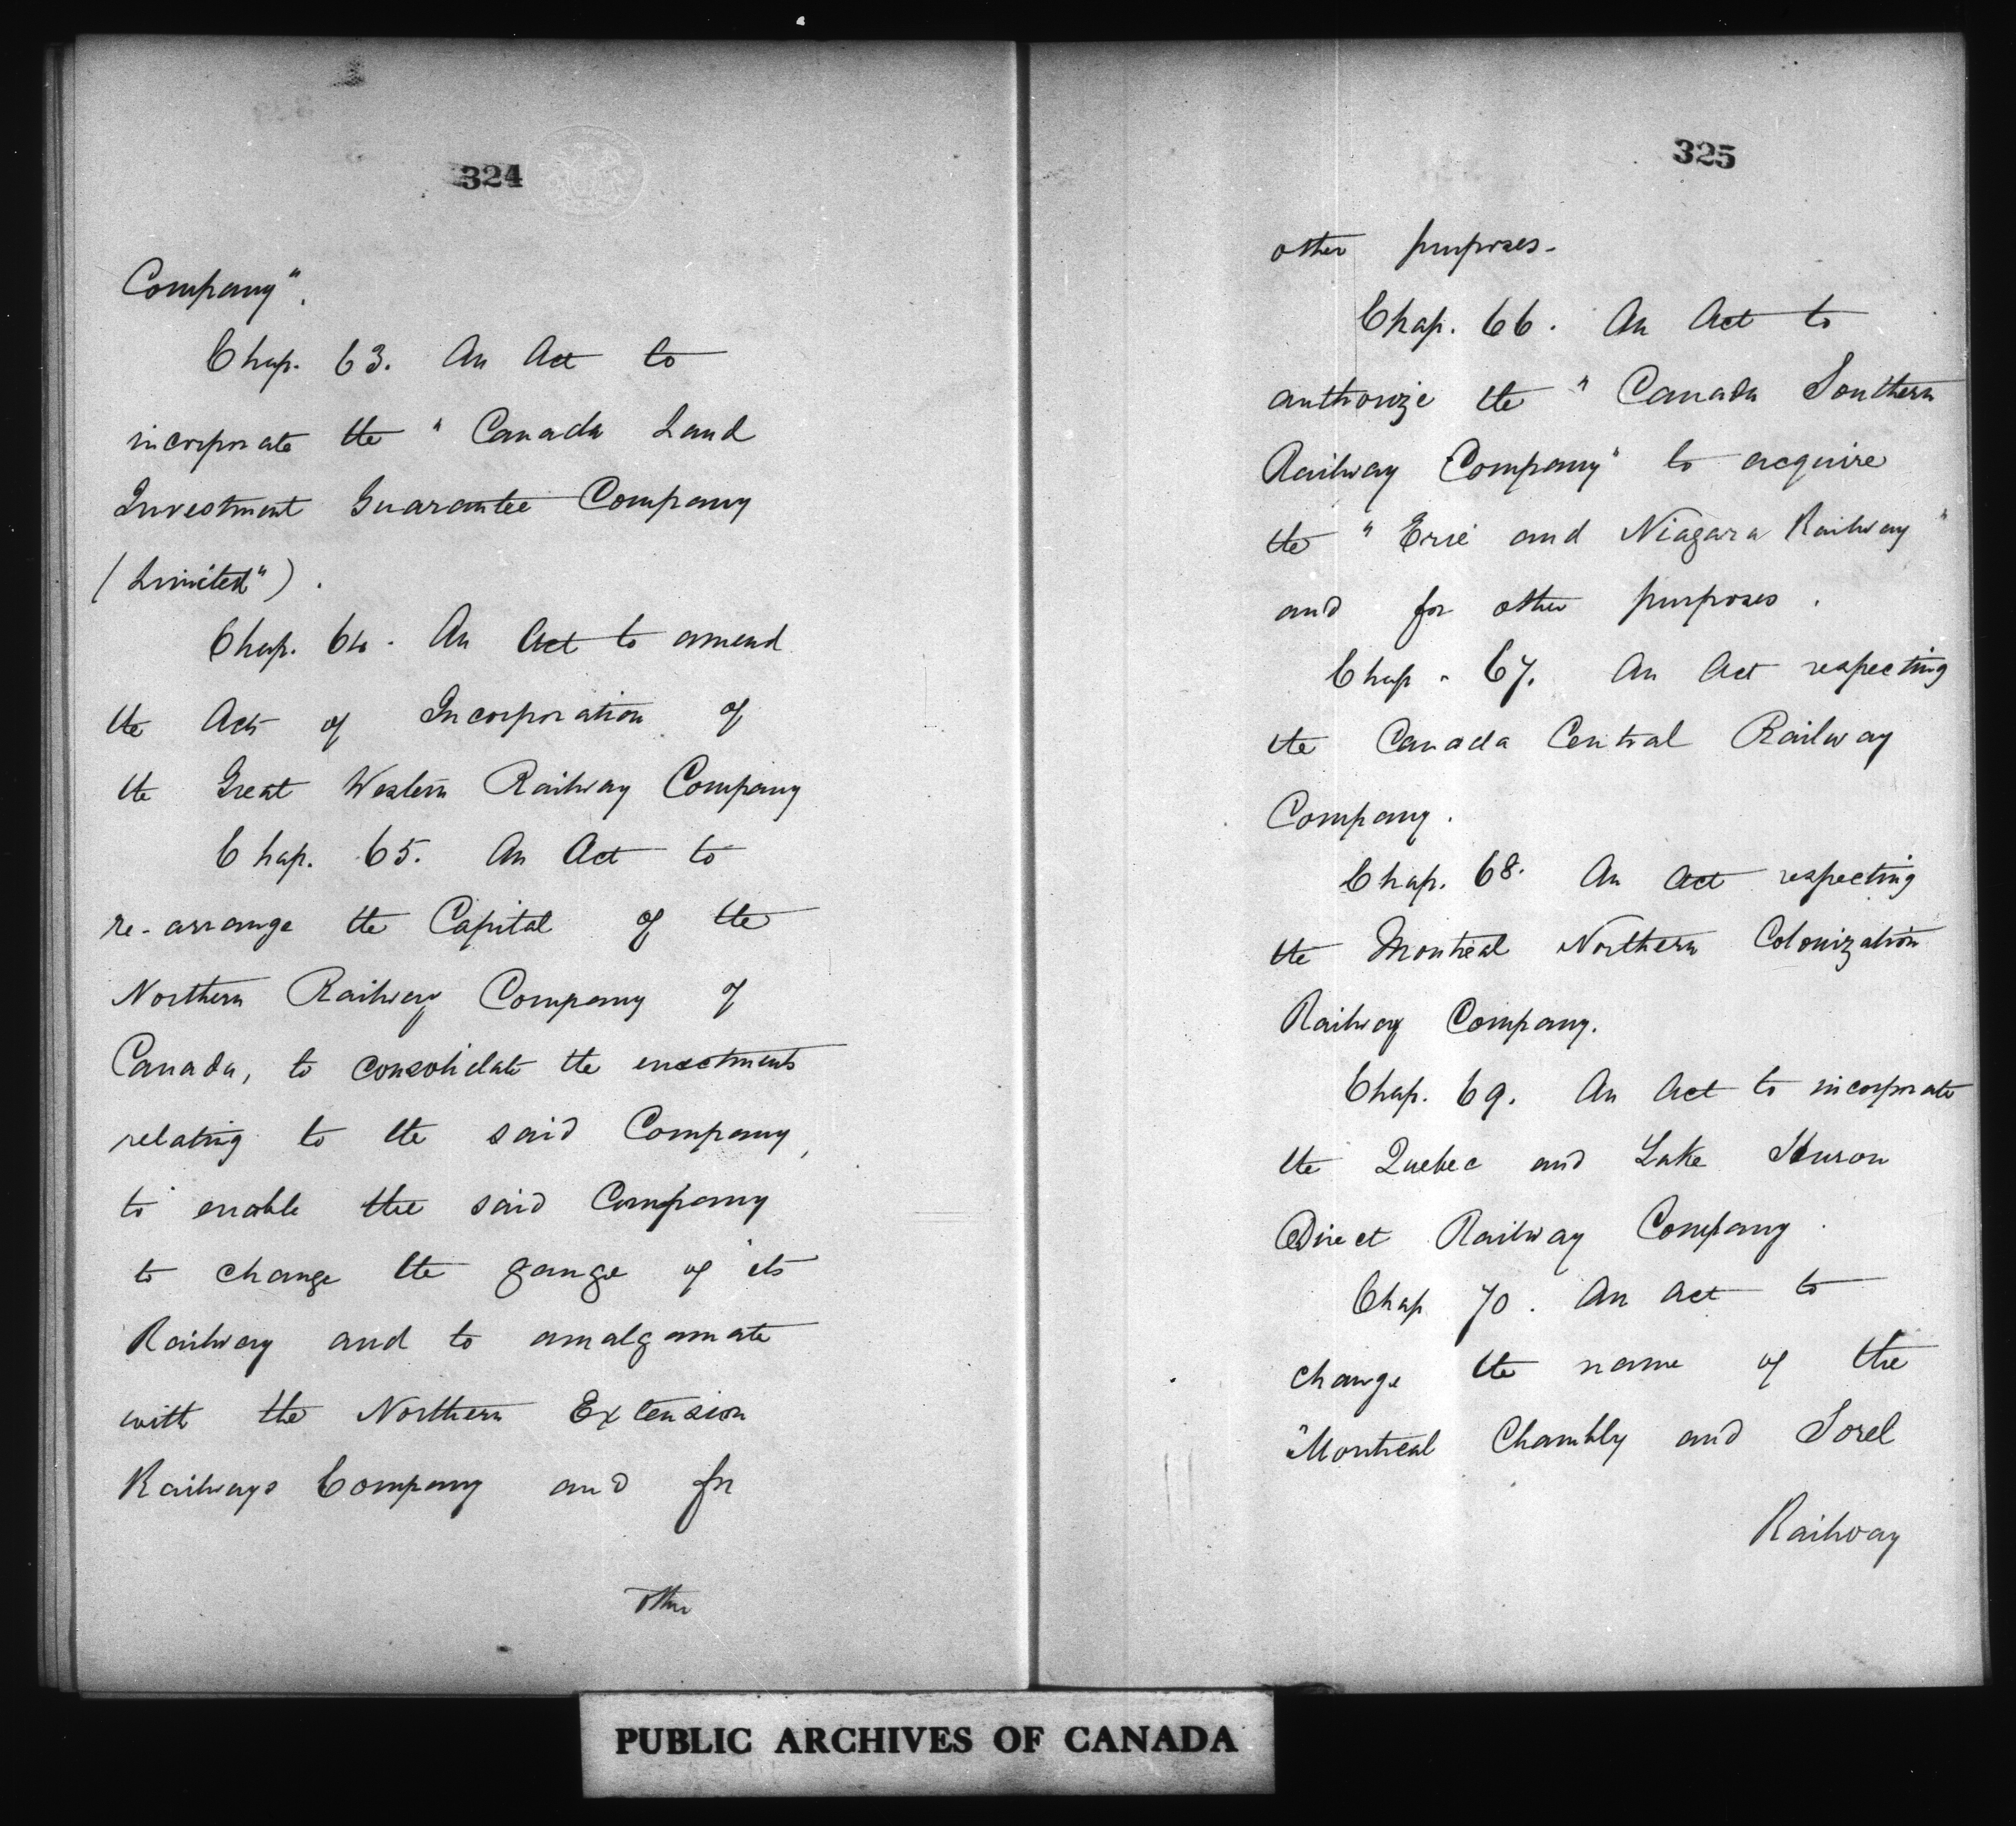 324
Company".
Chap. 63. An Act to
incorporate the " Canada Land
Investment Guarantee Company
(Limited").
Chap. 64. An Act to amend
the Acts of Incorporation of
the Great Western Railway Company
Chap. 65. An Act to
re-arrange the Capital of the
Northern Railway Company of
Canada, to consolidate the enactments
relating to the said Company,
to enable the said Company
to change the gauge of its
Railway and to amalgamate
with the Northern Extension
Railways Company and for
other
325
other purposes.
Chap. 66. An Act to
authorize the " Canada Southern
Railway Company" to acquire
the " Erie and Niagara Railway "
and for other purposes.
Chap. 67. An Act respecting
the Canada Central Railway
Company.
Chap. 68. An Act respecting
the Montreal Northern Colonization
Railway Company.
Chap. 69. An Act to incorporate
the Quebec and Lake Huron
Direct Railway Company.
Chap 70. An Act to
change the name of the
"Montreal Chambly and Sorel
Railway
PUBLIC ARCHIVES OF CANADA